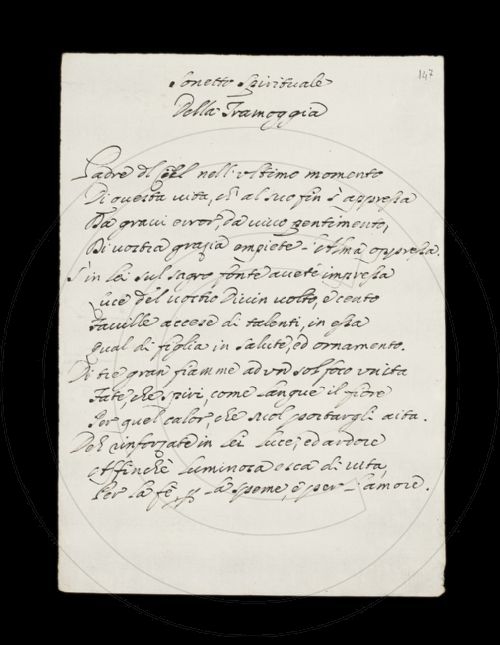 147
Sonetto Spirituale
Della Tramoggia
Padre del Ciel nell'ultimo momento
Di questa vita, ch'al suo fin s'appressa
Da gravi error, da vivo pentimento,
Di vostra grazia empiete l'Alma oppressa.
S'in lei sul sagro fonte avete impressa
Luce del vostro Divin volto, e cento
Faville accese di talenti, in essa
Qual di figlia in salute, ed ornamento.
Di tre gran fiamme ad un sol foco unita
Fate, che spiri, come langue il fiore
Per quel calor, che suol portargli aita.
Deh rinforzate in lei luce, ed ardore
Affinchè luminosa esca di vita,
Per la fè, per la speme, e per l'amore.